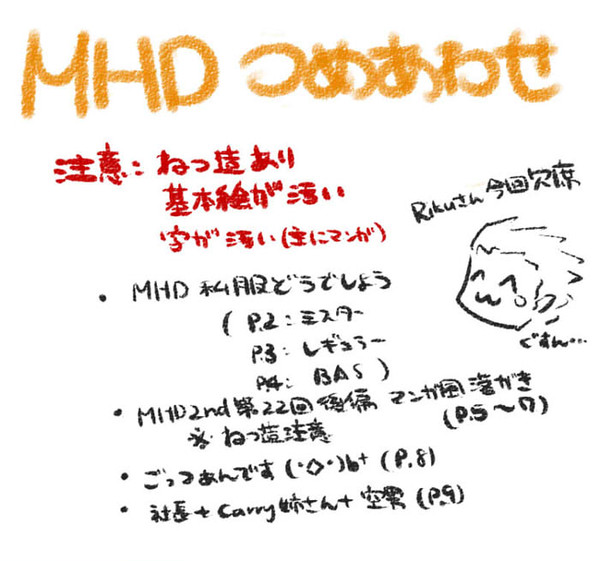 MHDつめあわせ
注意：ねつ造あり
基本絵が汚い
字が汚い(主にマンガ)
Rikuさん今回欠席
ぐすん…
・MHD私服どうでしょう
(P.2：ミスター
P.3：レギュラー
P.4：BAS)
・MHD2nd第22回後編 マンガ風落がき
(P.5〜7)
※ねつ造注意
・ごっつあんです(・◇・)b+ (P.8)
・社長+Carry姉さん+空男(P.9)